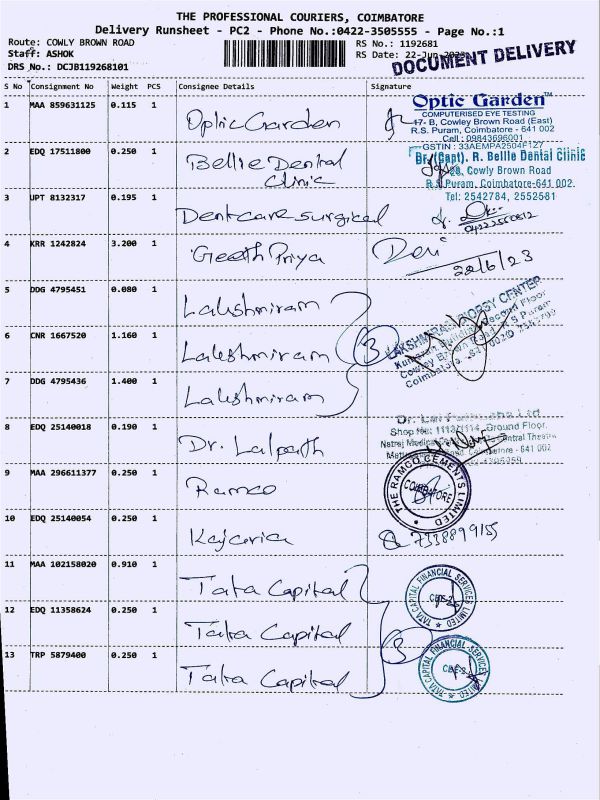 THE PROFESSIONAL COURIERS, COIMBATORE
Delivery Runsheet - PC2 - Phone No.:0422-3505555 - Page No.:1
Route: COWLY BROWN ROAD
RS No.: 1192681
Staff: ASHOK
RS Date: 22-Jun-2023
DRS No.: DCJB119268101
DOCUMENT DELIVERY
S No Consignment No Weight PCS Consignee Details Signature
1 MAA 859631125 0.115 1 Optic Garden
Optic Garden™
COMPUTERISED EYE TESTING
17- B, Cowley Brown Road (East)
R.S. Puram, Coimbatore - 641 002
Cell : 09843696001
GSTIN : 33AEMPA2504F1Z7
2 EDQ 17511800 0.250 1 Bellie Dental
Clinic
Dr. (Capt). R. Bellie Dental Clinic
Cowley Brown Road
R.S.Puram, Coimbatore-641 002.
Tel: 2542784, 2552581
3 UPT 8132317 0.195 1 Dentcare surgical
4 KRR 1242824 3.200 1 Geeth Priya
22/6/23
5 DDG 4795451 0.080 1 Lakshmiram
6 CNR 1667520 1.160 1 Lakshmiram
3
LAKSHMIRAM BIOPSY CENTER
Second Floor
Cowley Brown Road, R S Puram
Coimbatore
7 DDG 4795436 1.400 1 Lakshmiram
8 EDQ 25140018 0.190 1 Dr. Lalpath
Dr. Lal
Shop No: Ground Floor,
Coimbatore - 641 002
9 MAA 296611377 0.250 1 Ramco
THE RAMCO CEMENTS LIMITED
COIMBATORE
10 EDQ 25140054 0.250 1 Kajaria
7338899155
11 MAA 102158020 0.910 1 Tata Capital
TATA CAPITAL FINANCIAL SERVICES LIMITED
12 EDQ 11358624 0.250 1 Tata Capital
3
13 TRP 5879400 0.250 1 Tata Capital
TATA CAPITAL FINANCIAL SERVICES LIMITED